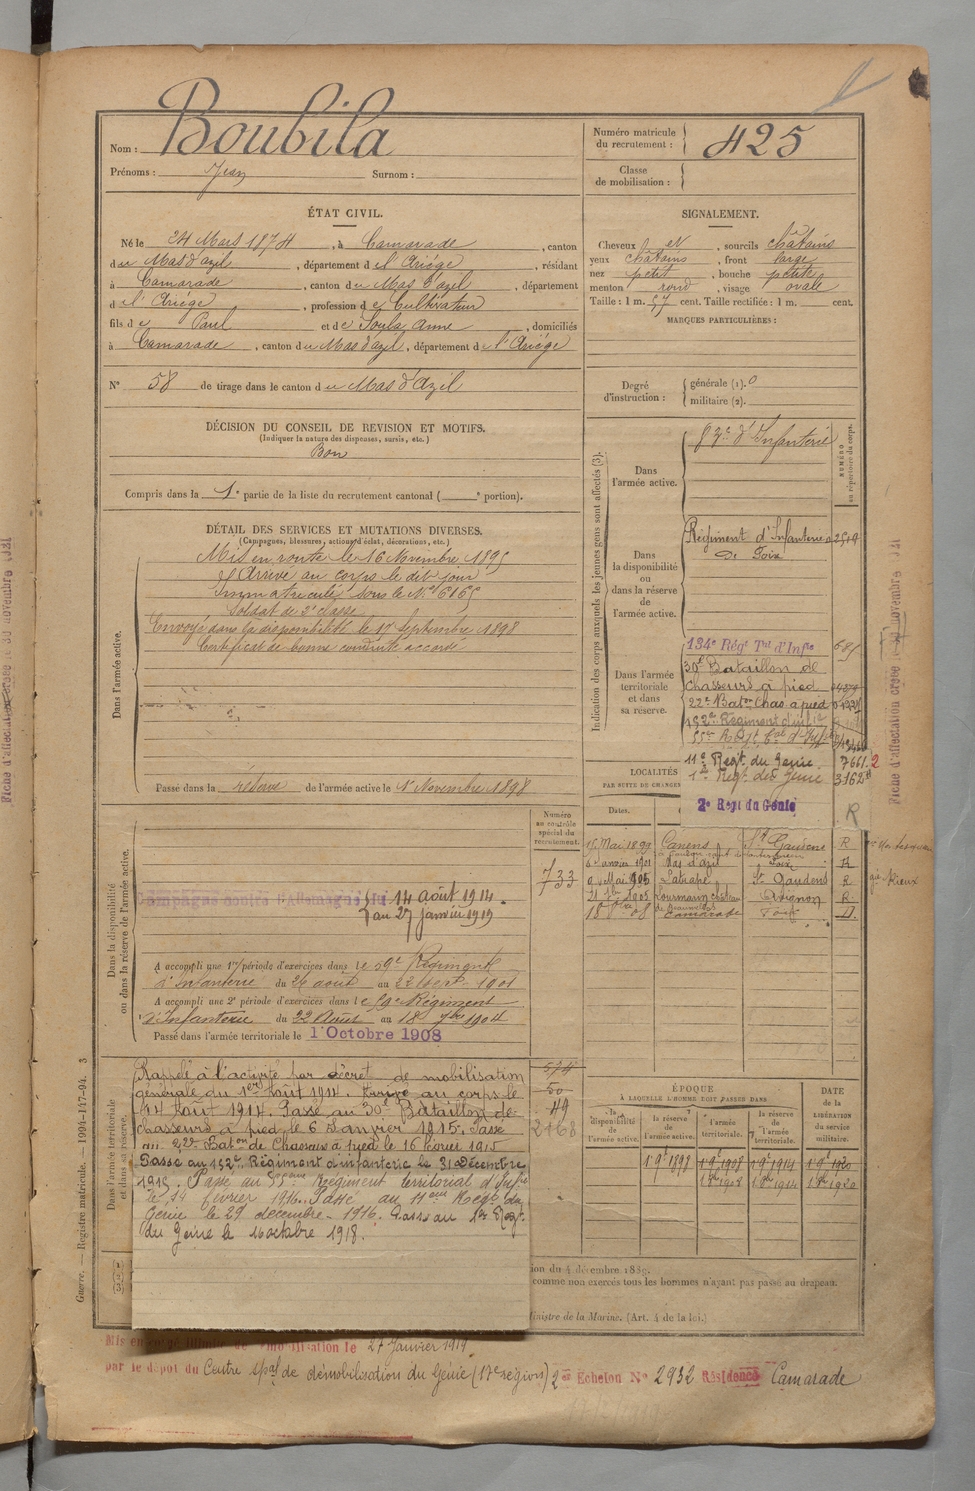 Nom : Boubila
Prénoms : Jean Surnom :
Numéro matricule du recrutement : 425
Classe de mobilisation :
ÉTAT CIVIL.
Né le 24 Mars 1874, à Camarade, canton
du Mas d'azil, département de l'Ariége, résidant
à Camarade, canton du Mas d'azil, département
de l'Ariége, profession de Cultivateur
fils de Paul et de Soula Anne, domiciliés
à Camarade, canton du Mas d'azil, département de l'Ariége
N° 58 de tirage dans le canton du Mas d'Azil
SIGNALEMENT.
Cheveux et, sourcils châtains
yeux châtains, front large
nez petit, bouche petite
menton rond, visage ovale
Taille : 1 m. 57 cent. Taille rectifiée : 1 m. cent.
MARQUES PARTICULIÈRES :
Degré d'instruction : générale (1). 0
militaire (2).
DÉCISION DU CONSEIL DE REVISION ET MOTIFS.
(Indiquer la nature des dispenses, sursis, etc.)
Bon
Compris dans la 1e partie de la liste du recrutement cantonal ( e portion).
DÉTAIL DES SERVICES ET MUTATIONS DIVERSES.
(Campagnes, blessures, actions d'éclat, décorations, etc.)
Dans l'armée active.
Mis en route le 16 Novembre 1895
Arrivé au corps le dit jour
Immatriculé sous le N°
Soldat de 2e classe
Envoyé dans la disponibilité le 17 Septembre 1898
Certificat de bonne conduite accordé
Passé dans la réserve de l'armée active le 1er Novembre 1898
Indication des corps auxquels les jeunes gens sont affectés (3).
NUMÉRO au répertoire du corps.
Dans l'armée active.
d'Infanterie
Dans la disponibilité ou dans la réserve de l'armée active.
Régiment d'Infanterie
De Foix
Dans l'armée territoriale et dans sa réserve.
134e Régt Tal d'Infie
30e Bataillon de
chasseurs à pied
22e Baton Chas à pied
152e Régiment d'infie
55e Régt Tal d'Infie
11e Régt du Génie 7661
1er Régt du Génie 3162
2e Régt du Génie
R
LOCALITÉS
PAR SUITE DE CHANGEM
Dates.
15 Mai 1899 Canens St Gaudens R
6 Janvier 1901 Mas d'azil Foix
9 Mai 1905 Latrape St Gaudens R
1905 Lourmarin château Avignon R
Camarade Foix D.
Rieux
Numéro au contrôle spécial du recrutement.
733
Dans la disponibilité ou dans la réserve de l'armée active.
Campagne contre l'Allemagne du 14 août 1914
au 27 janvier 1919
A accompli une 1re période d'exercices dans le 59e Régiment
d'Infanterie du 26 août au 22 Sept. 1901
A accompli une 2e période d'exercices dans le 59e Régiment
d'Infanterie du 22 Août au 18 7bre 1904
Passé dans l'armée territoriale le 1 Octobre 1908
Dans l'armée territoriale et dans sa réserve.
Rappelé à l'activité par décret de mobilisation
générale du 1er Août 1914. Arrivé au corps le
14 Août 1914. Passé au 30e Bataillon de
chasseurs à pied le 6 Janvier 1915. Passé
au 22e Baton de Chasseurs à pied le 16 février 1915
Passé au 152e Régiment d'infanterie le 31 Décembre
1915. Passé au 55ème Régiment territorial d'Infie
le 14 février 1916. Passé au 11ème Régt du
Génie le 29 décembre 1916. Passé au 1er Régt
du Génie le 16 octobre 1918.
574
50
49
2468
ÉPOQUE
A LAQUELLE L'HOMME DOIT PASSER DANS
la disponibilité de l'armée active.
la réserve de l'armée active.
l'armée territoriale.
la réserve de l'armée territoriale.
DATE de la LIBÉRATION du service militaire.
1 9e 1898 1 9e 1908 1 9e 1914 1 9e 1920
ion du 4 décembre 1889.
comme non exercés tous les hommes n'ayant pas passé au drapeau.
Ministre de la Marine. (Art. 4 de la loi.)
Guerre. — Registre matricule. — 1994-147-94. 3
Mis en congé illimité de démobilisation le 27 Janvier 1919.
par le dépôt du Centre spal de démobilisation du Génie (17e région) 2e Echelon N° 2932 Résidence Camarade